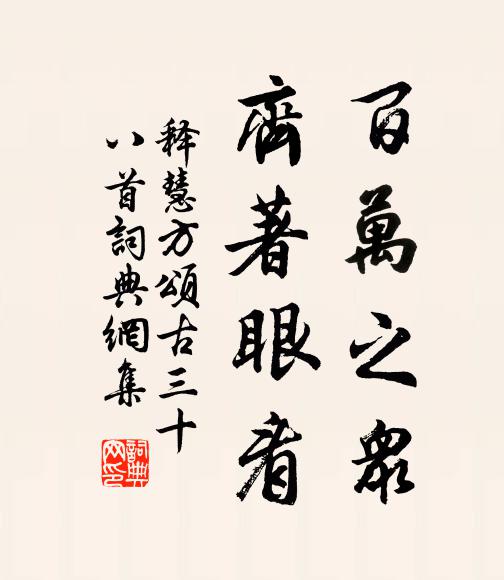 百萬之眾
齊著眼看
释慧方頌古三十
八首詞典網集
詞典
网印